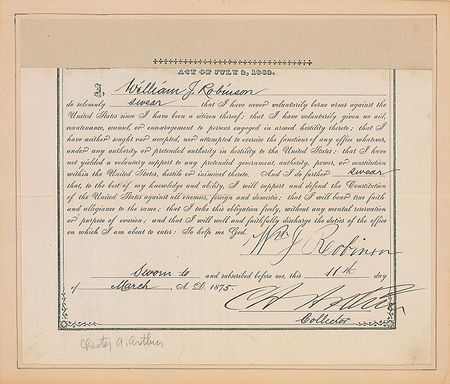 ACT OF JULY 2, 1862.
I, William J. Robinson
do solemnly swear that I have never voluntarily borne arms against the
United States since I have been a citizen thereof; that I have voluntarily given no aid,
countenance, counsel, or encouragement to persons engaged in armed hostility thereto; that I
have neither sought nor accepted, nor attempted to exercise the functions of any office whatever,
under any authority or pretended authority in hostility to the United States; that I have
not yielded a voluntary support to any pretended government, authority, power, or constitution
within the United States, hostile or inimical thereto. And I do further swear
that, to the best of my knowledge and ability, I will support and defend the Constitution
of the United States against all enemies, foreign and domestic; that I will bear true faith
and allegiance to the same; that I take this obligation freely, without any mental reservation
or purpose of evasion; and that I will well and faithfully discharge the duties of the office
on which I am about to enter: So help me God.
Wm J. Robinson
Sworn to and subscribed before me, this 11th day
of March, A. D. 1875.
C A Arthur
Collector
Chester A. Arthur